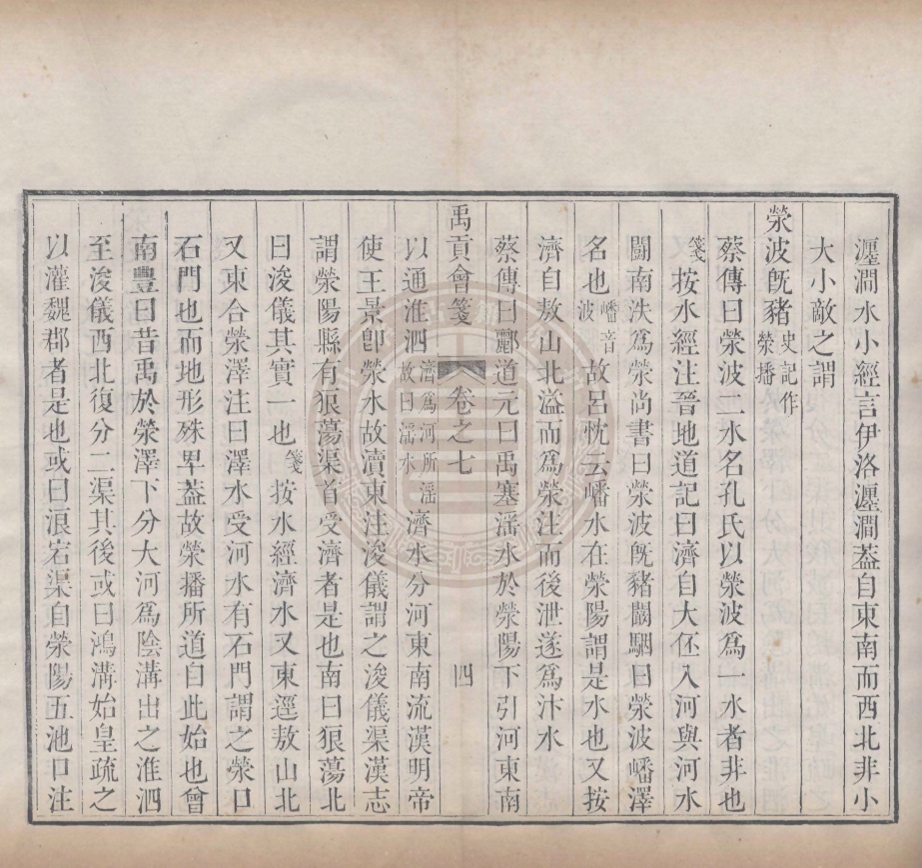 瀍澗水小經言伊洛瀍澗葢自東南而西北非小
大小敵之謂
滎波旣豬史記作滎播
蔡傳曰滎波二水名孔氏以滎波爲一水者非也
箋按水經注晉地道記曰濟自大伾入河與河水
鬬南泆爲滎尚書曰滎波旣豬闞駰曰滎波嶓澤
名也嶓音波故呂忱云嶓水在滎陽謂是水也又按
濟自敖山北溢而爲滎注而後泄遂爲汴水
蔡傳曰酈道元曰禹塞滛水於滎陽下引河東南
禹貢會箋 卷之七 四
以通淮泗濟爲河所滛故曰滛水濟水分河東南流漢明帝
使王景卽滎水故瀆東注浚儀謂之浚儀渠漢志
謂滎陽縣有狼蕩渠首受濟者是也南曰狼蕩北
曰浚儀其實一也箋按水經濟水又東逕敖山北
又東合滎澤注曰澤水受河水有石門謂之滎口
石門也而地形殊卑葢故滎播所道自此始也曾
南豐曰昔禹於滎澤下分大河爲陰溝出之淮泗
至浚儀西北復分二渠其後或曰鴻溝始皇疏之
以灌魏郡者是也或曰浪宕渠自滎陽五池口注